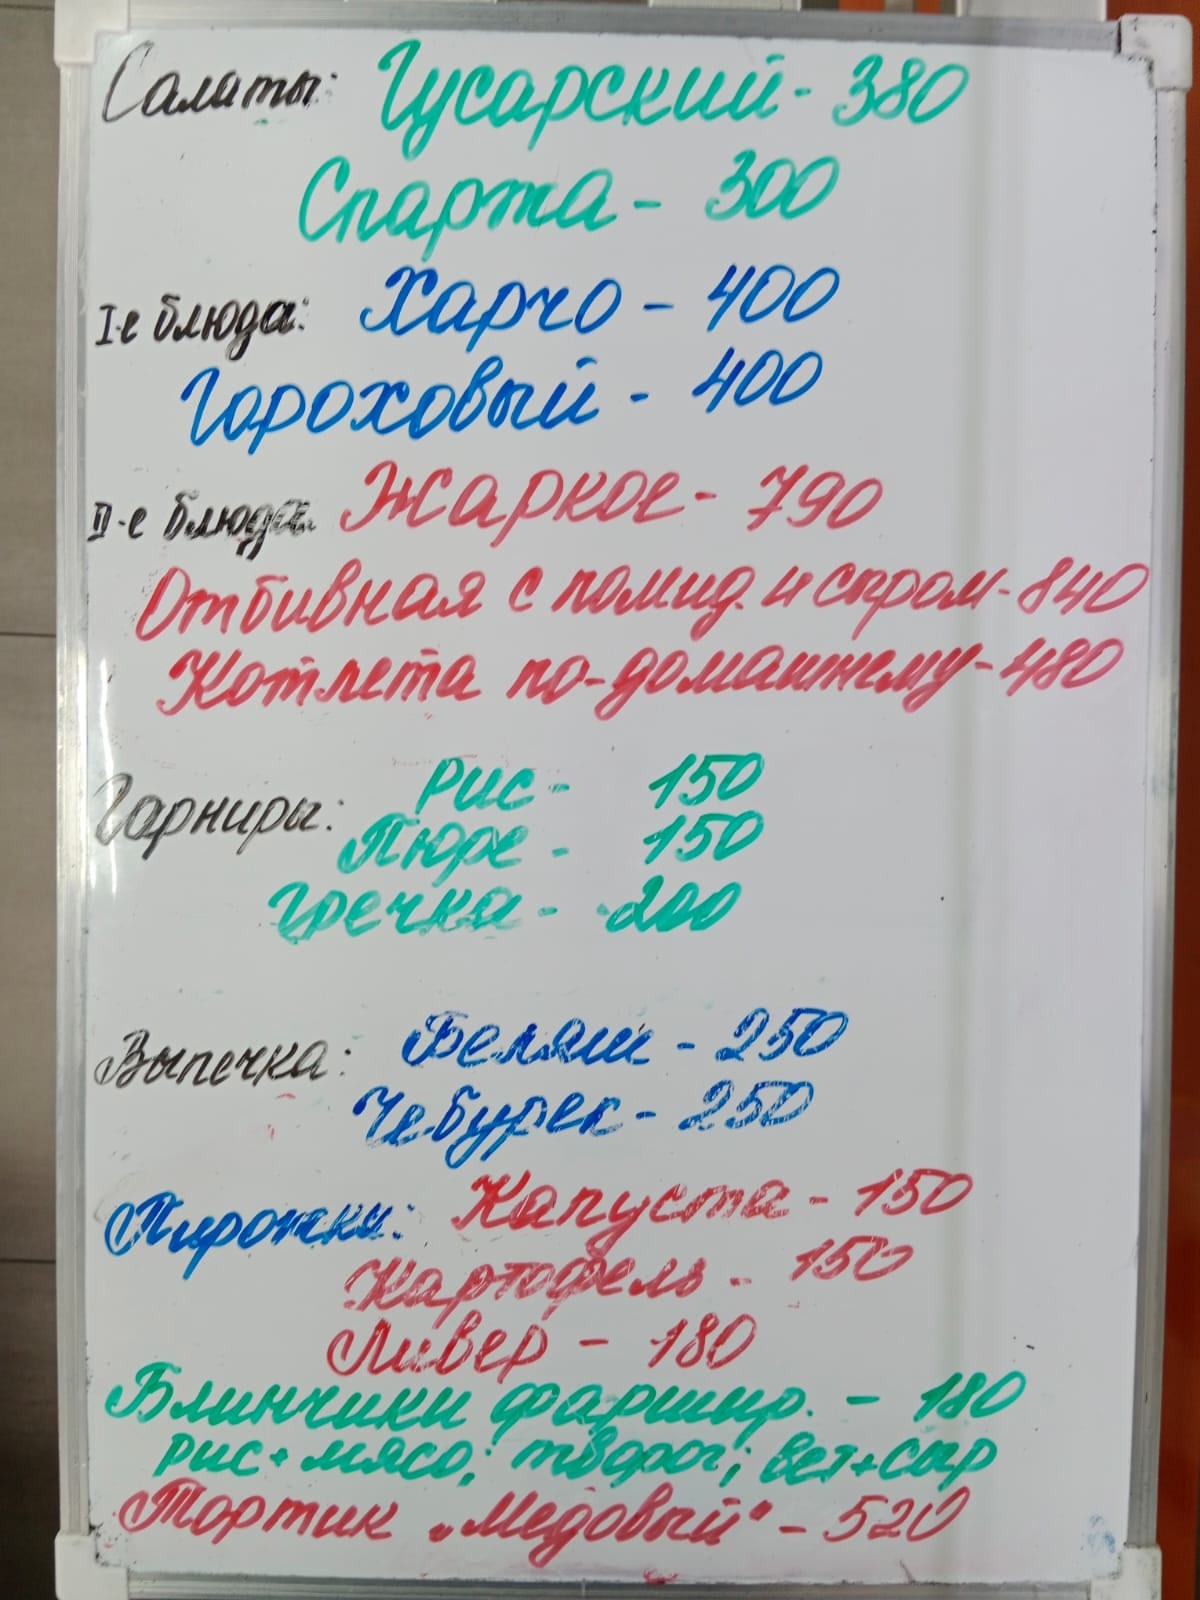 Салаты: Гусарский - 380
Спаржа - 300
I-е блюда: Харчо - 400
Гороховый - 400
II-е блюда Жаркое - 790
Отбивная с помид. и сыром - 840
Котлета по-домашнему - 480
Гарниры: Рис - 150
Пюре - 150
Гречка - 200
Выпечка: Беляш - 250
Чебурек - 250
Пирожки: Капуста - 150
Картофель - 150
Ливер - 180
Блинчики фаршир. - 180
рис+мясо; творог; вет+сыр
Тортик „Медовый" - 520